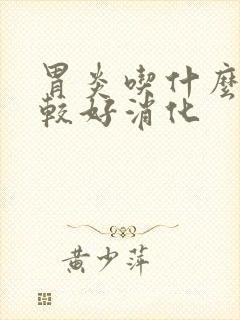 胃炎喫什麼
較好消化
黄少萍